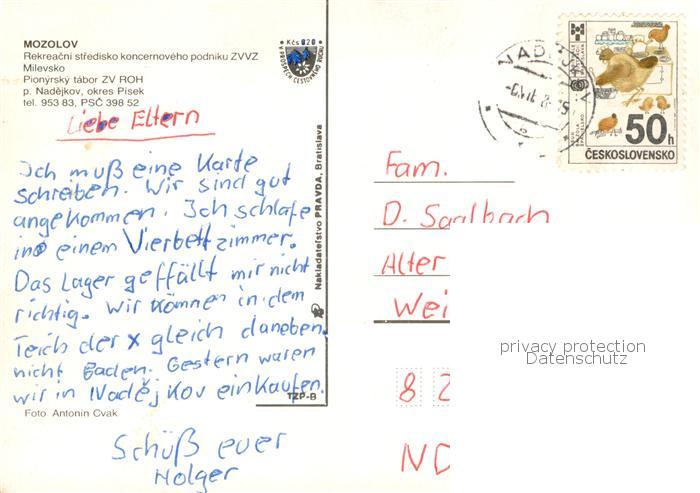 MOZOLOV
Rekreační středisko koncernového podniku ZVVZ
Milevsko
Pionýrský tábor ZV ROH
p. Nadějkov, okres Písek
tel. 953 83, PSČ 398 52
Kčs 0.20
Liebe Eltern
Ich muß eine Karte
schreiben. Wir sind gut
angekommen. Ich schlafe
in einem Vierbettzimmer.
Das Lager geffällt mir nicht
richtig. Wir können in dem
Teich der x gleich daneben
nicht Baden. Gestern waren
wir in Naděj kov einkaufen.
Foto Antonín Cvak
Schüß euer
Holger
Nakladateľstvo PRAVDA, Bratislava
TZP-B
50h
ČESKOSLOVENSKO
Fam.
D. Saalbach
Alter
Wei
8 2
ND
privacy protection
Datenschutz